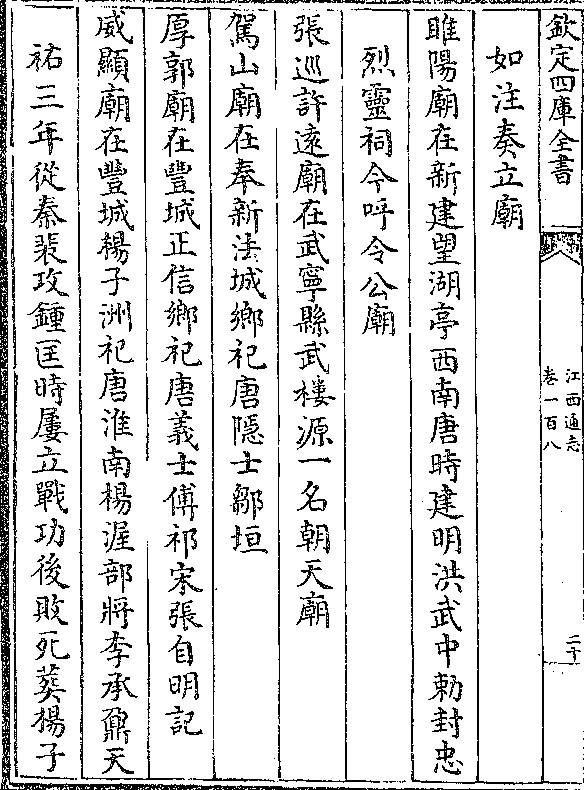 欽定四庫全書
江西通志
卷一百八
二十
如注奏立廟
睢陽廟在新建望湖亭西南唐時建明洪武中勅封忠
烈靈祠今呼令公廟
張巡許遠廟在武寧縣武樓源一名朝天廟
駕山廟在奉新法城鄉祀唐隱士鄒垣
厚郭廟在豐城正信鄉祀唐義士傅祁宋張自明記
威顯廟在豐城楊子洲祀唐淮南楊渥部將李承鼐天
祐三年從秦裴攻鍾匡時屢立戰功後敗死葬楊子